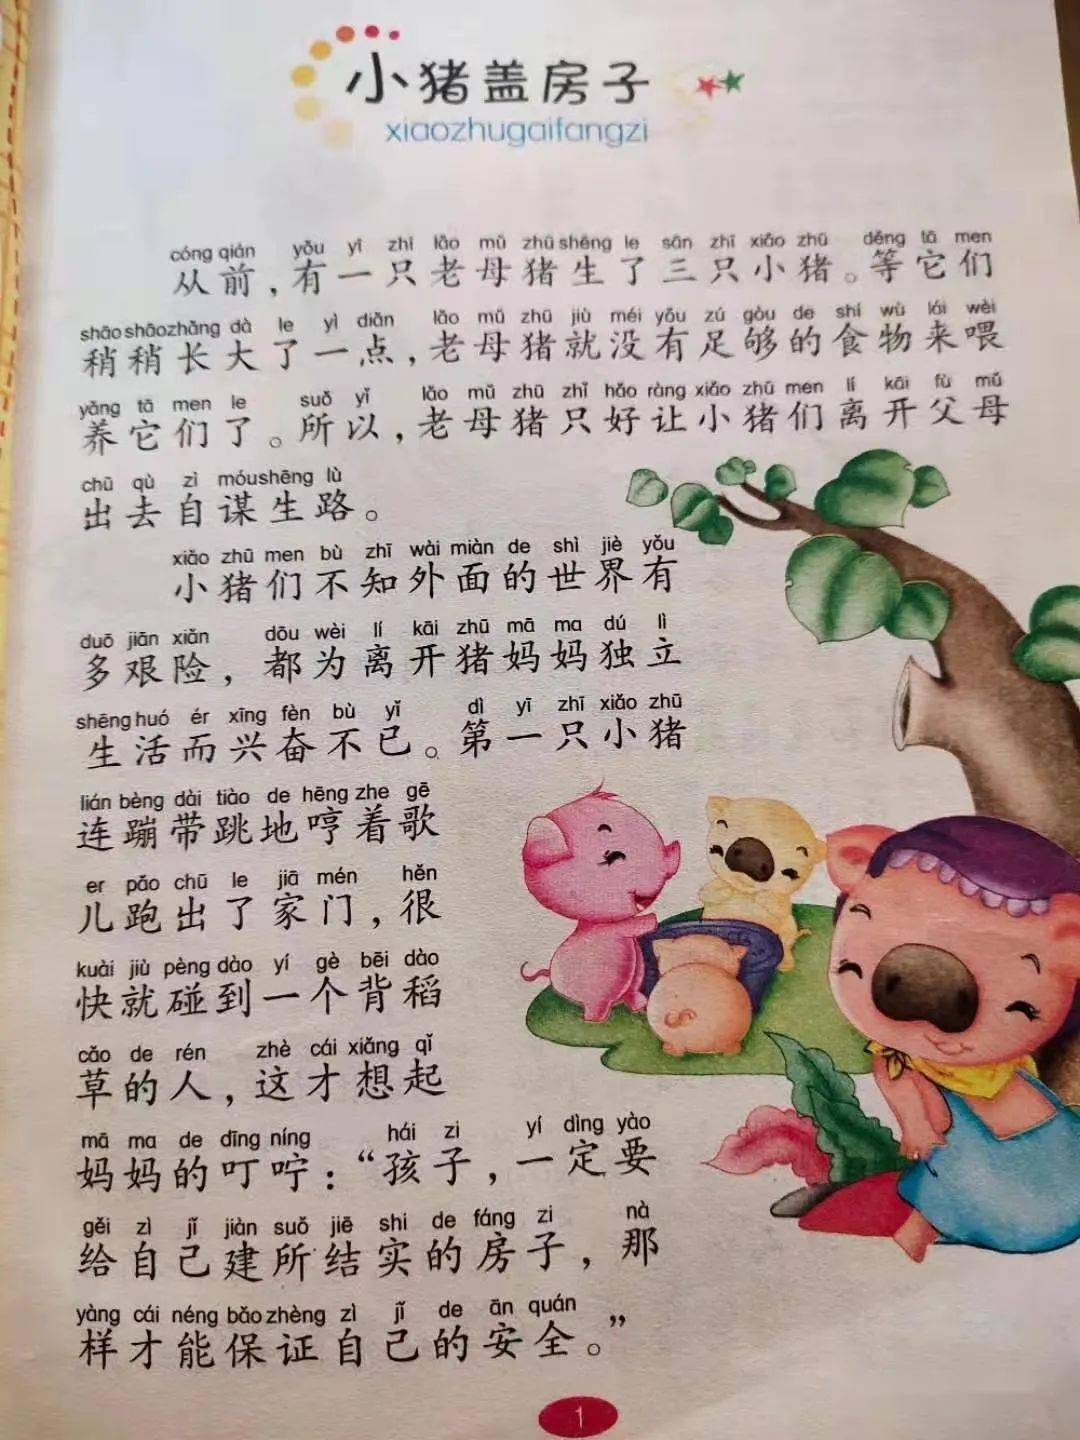 小猪盖房子
xiaozhugaifangzi
cóng qián yǒu yī zhī lǎo mǔ zhū shēng le sān zhī xiǎo zhū děng tā men
从前，有一只老母猪生了三只小猪。等它们
shāo shāo zhǎng dà le yì diǎn lǎo mǔ zhū jiù méi yǒu zú gòu de shí wù lái wèi
稍稍长大了一点，老母猪就没有足够的食物来喂
yǎng tā men le suǒ yǐ lǎo mǔ zhū zhǐ hǎo ràng xiǎo zhū men lí kāi fù mǔ
养它们了。所以，老母猪只好让小猪们离开父母
chū qù zì móu shēng lù
出去自谋生路。
xiǎo zhū men bù zhī wài miàn de shì jiè yǒu
小猪们不知外面的世界有
duō jiān xiǎn dōu wèi lí kāi zhū mā ma dú lì
多艰险，都为离开猪妈妈独立
shēng huó ér xīng fèn bù yǐ dì yī zhī xiǎo zhū
生活而兴奋不已。第一只小猪
lián bèng dài tiào de hēng zhe gē
连蹦带跳地哼着歌
er pǎo chū le jiā mén hěn
儿跑出了家门，很
kuài jiù pèng dào yí gè bēi dào
快就碰到一个背稻
cǎo de rén zhè cái xiǎng qǐ
草的人，这才想起
mā ma de dīng níng hái zi yí dìng yào
妈妈的叮咛：“孩子，一定要
gěi zì jǐ jiàn suǒ jiē shi de fáng zi nà
给自己建所结实的房子，那
yàng cái néng bǎo zhèng zì jǐ de ān quán
样才能保证自己的安全。”
1